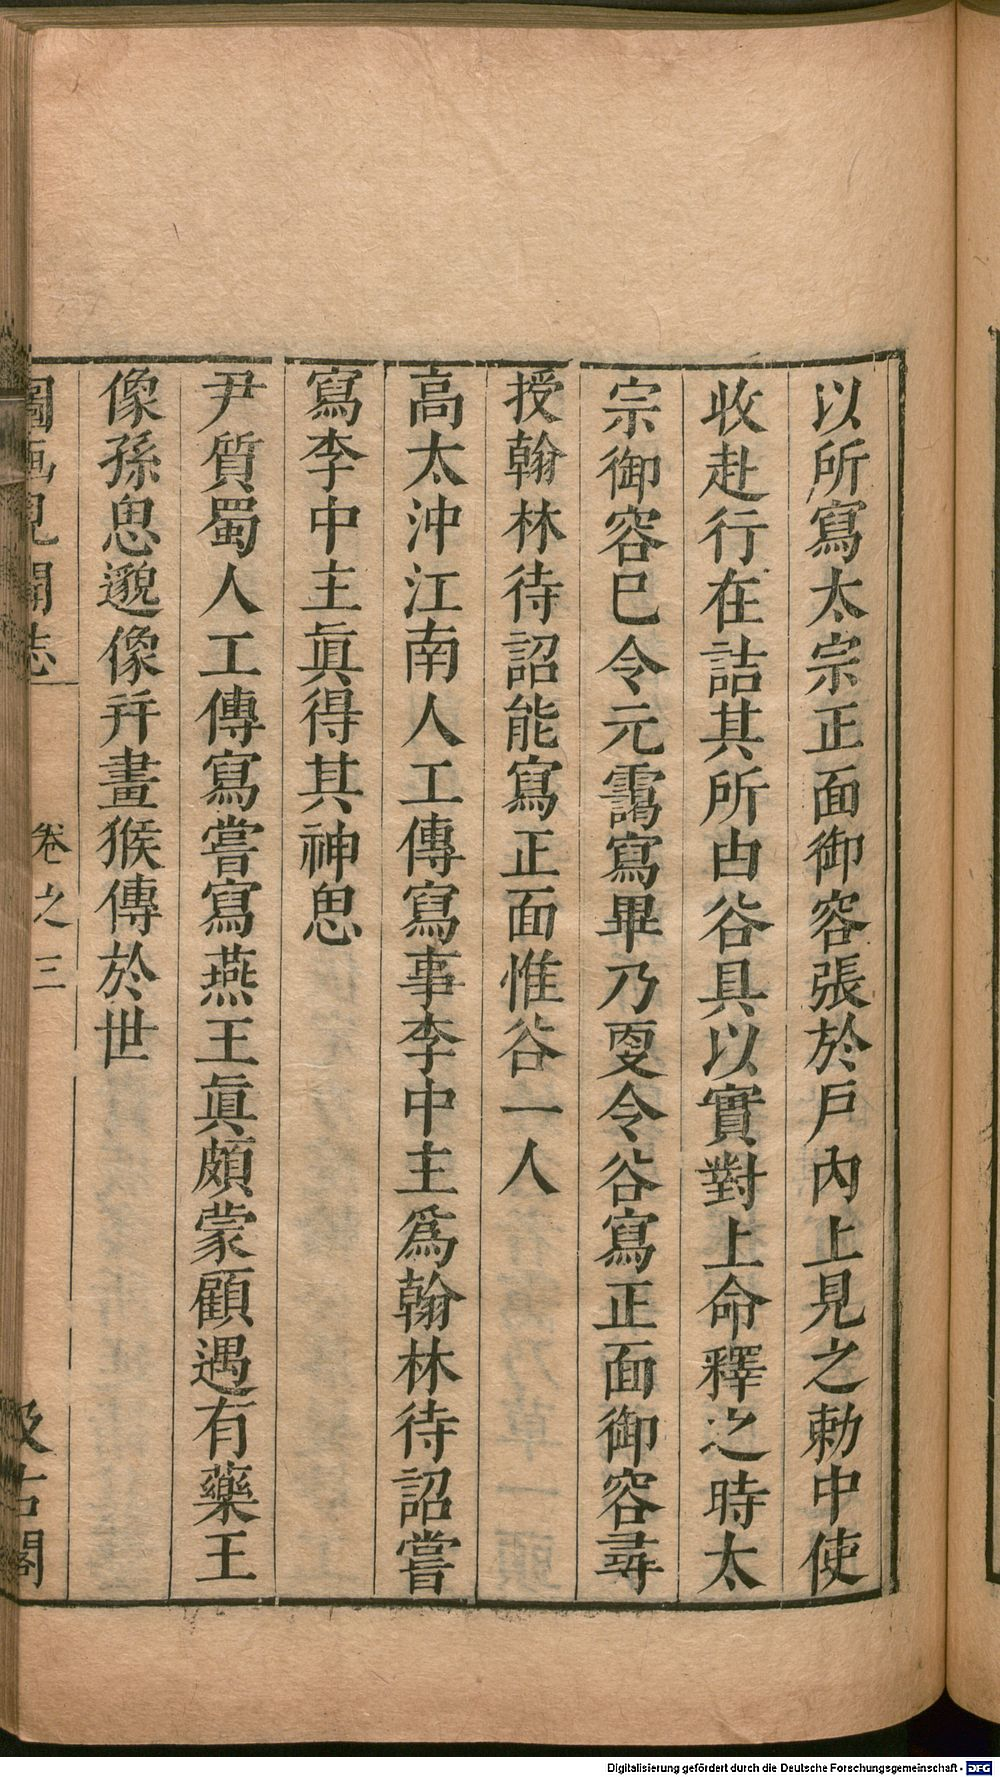 以所寫太宗正面御容張於戶內上見之勅中使
收赴行在詰其所由谷具以實對上命釋之時太
宗御容巳令元靄寫畢乃更令谷寫正面御容尋
授翰林待詔能寫正面惟谷一人
高太沖江南人工傳寫事李中主爲翰林待詔嘗
寫李中主眞得其神思
尹質蜀人工傳寫嘗寫燕王眞頗蒙顧遇有藥王
像孫思邈像并畫猴傳於世
圖畫見聞志 卷之三 汲古閣
Digitalisierung gefördert durch die Deutsche Forschungsgemeinschaft - DFG